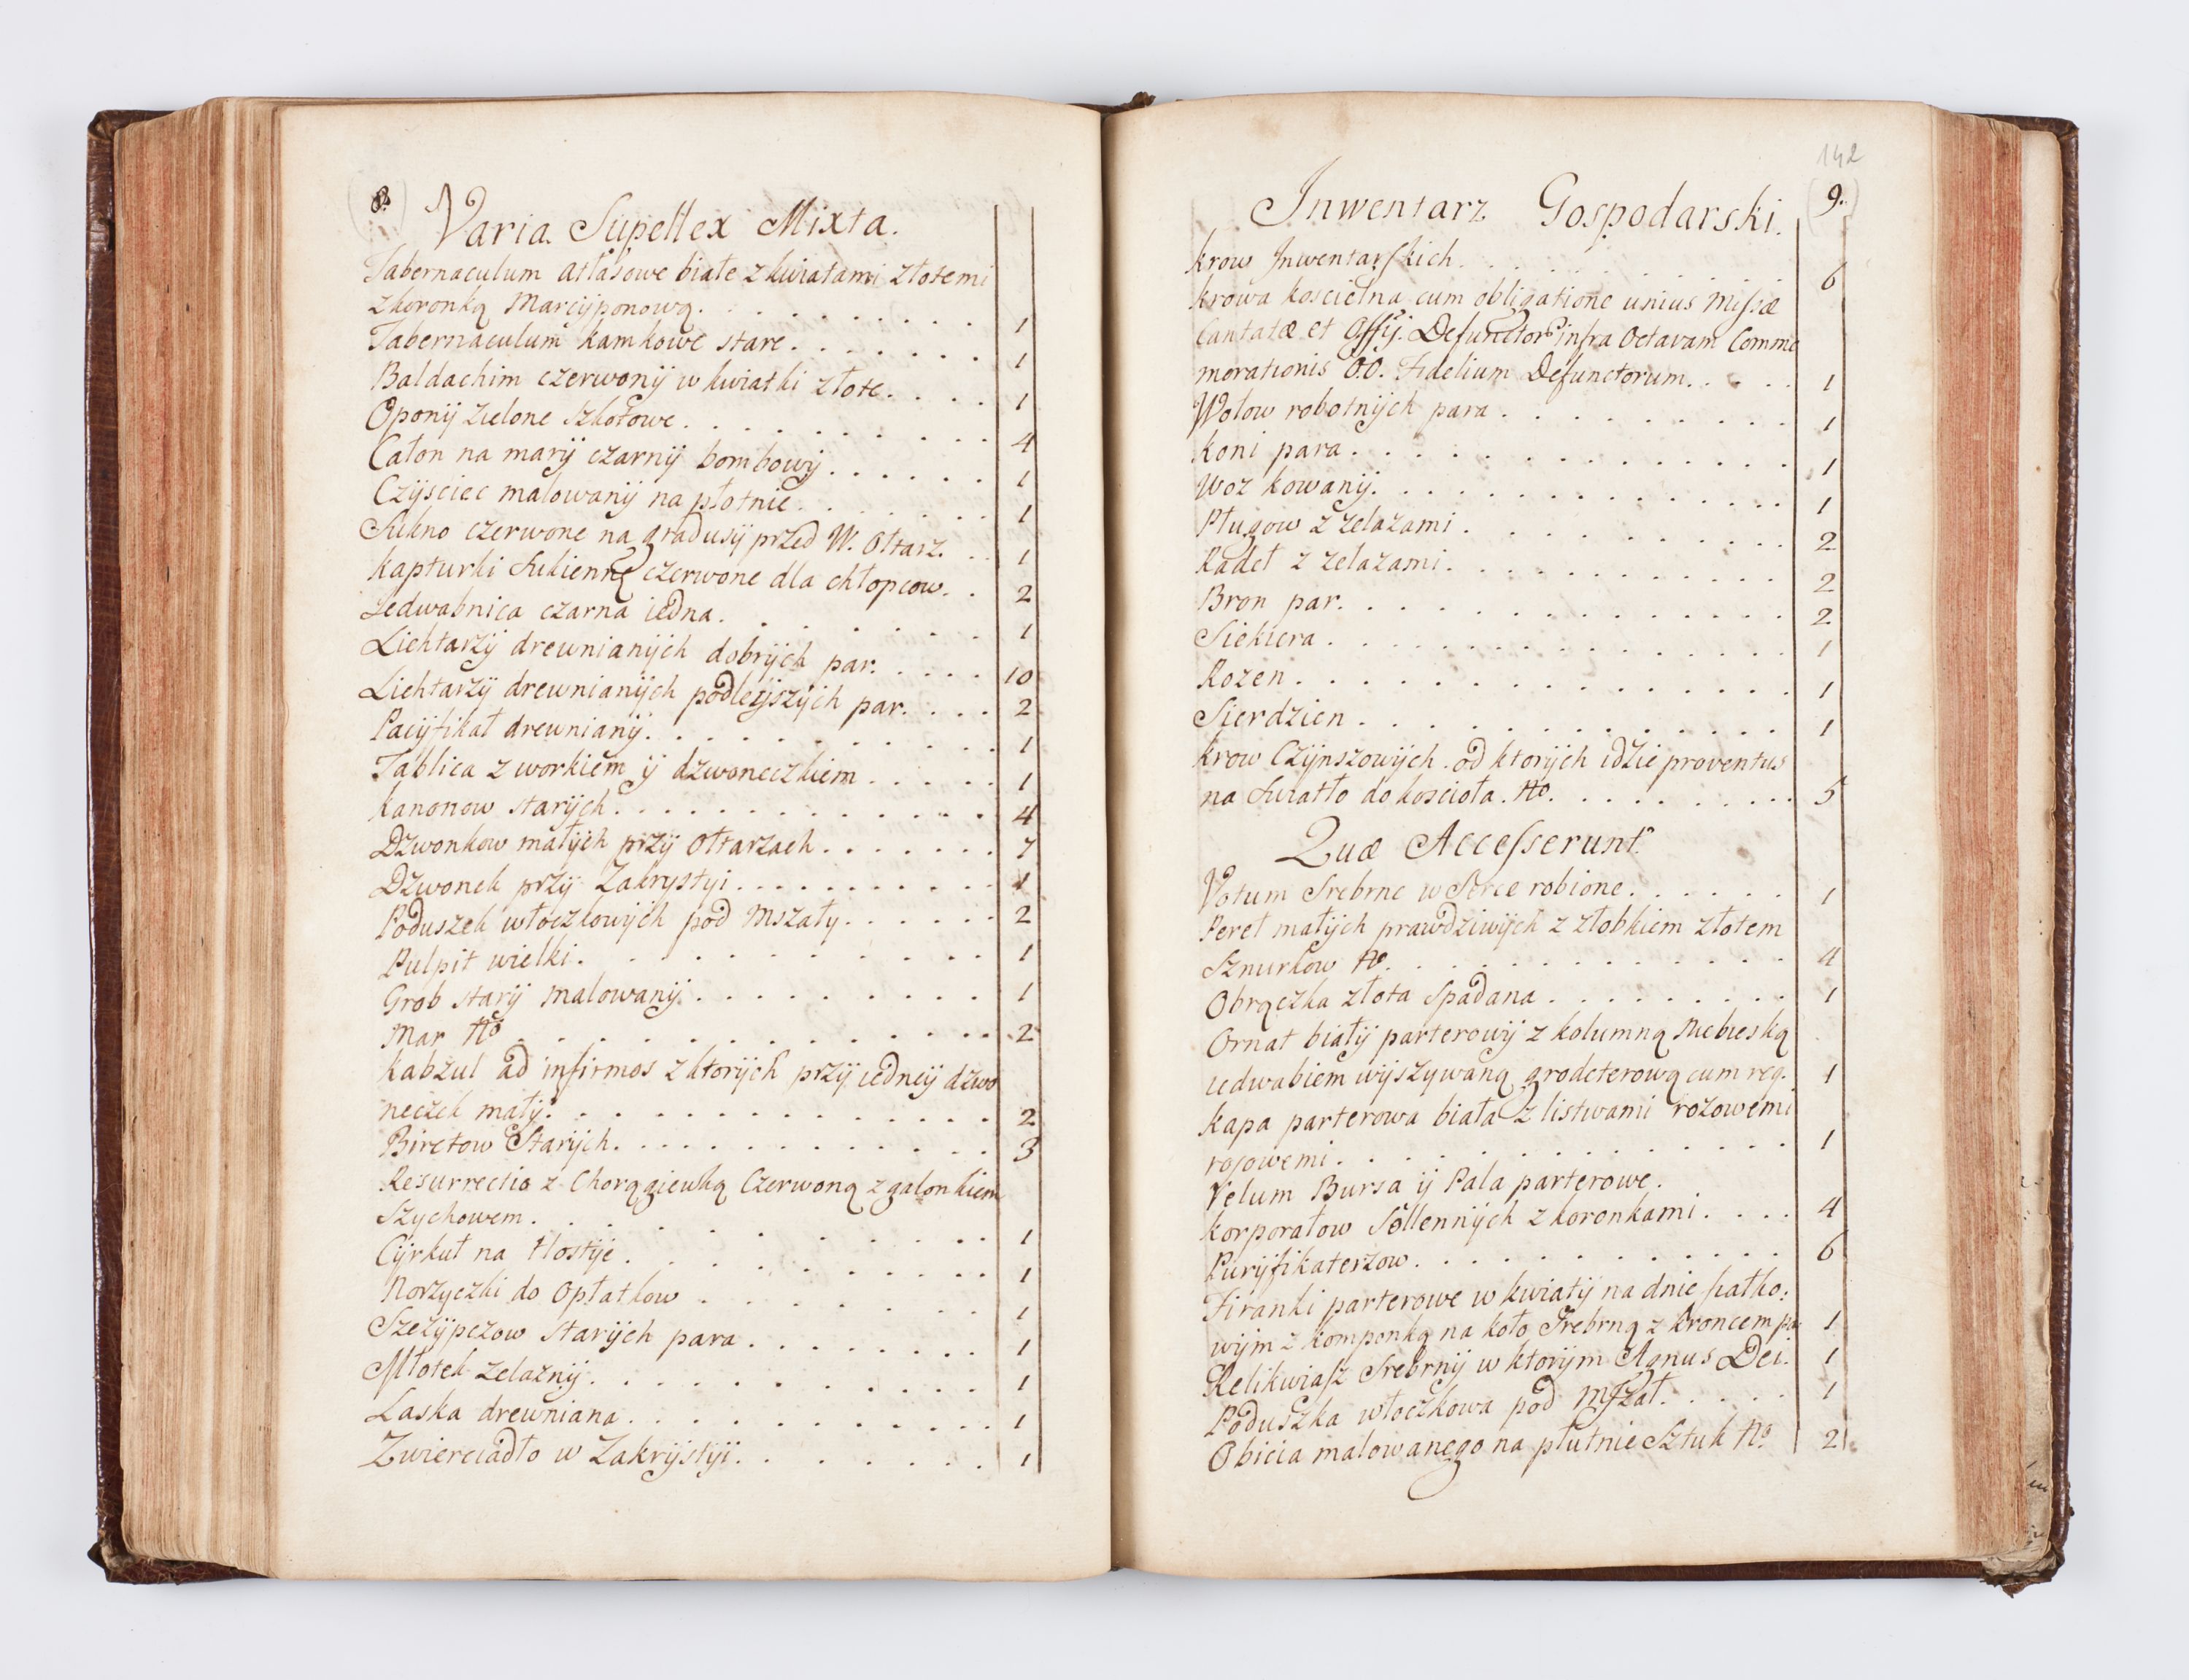 8.
Varia Supellex Mixta.
Tabernaculum atłasowe białe z kwiatami złotemi
z koronką Marcyponową. 1
Tabernaculum kamkowe stare. 1
Baldachim czerwonÿ w kwiatki złote. 1
Oponÿ zielone szkotowe. 4
Całon na marÿ czarnÿ bombowÿ. 1
Czÿsciec malowanÿ na płotnie. 1
Sukno czerwone na gradusÿ przed W. Ołtarz. 1
kapturki Sukienne czerwone dla chłopcow. 2
Jedwabnica czarna iedna. 1
Lichtarzÿ drewnianÿch dobrÿch par. 10
Lichtarzÿ drewnianÿch podleÿszÿch par. 2
Pacÿfikał drewnianÿ. 1
Tablica z workiem ÿ dzwoneczkiem 1
kanonow starÿch. 4
Dzwonkow małÿch przÿ ołtarzach. 7
Dzwonek przÿ Zakrystyi. 1
Poduszek włoczkowÿch pod Mszały. 2
Pulpit wielki. 1
Grob starÿ malowanÿ. 1
Mar No 2
kabzul ad infirmos z ktorÿch przÿ iedneÿ dzwo
neczek małÿ. 2
Biretow Starÿch. 3
Resurrectio z Chorągiewką Czerwoną z galonkiem
Szychowem. 1
Cÿrkuł na Hostÿe. 1
Norzyczki do Opłatkow 1
Szczÿpczow starÿch para. 1
Młotek zelaznÿ. 1
Laska drewniana. 1
Zwierciadło w Zakrÿstÿi. 1
142
9.
Inwentarz Gospodarski.
krow Inwentarskich. 6
krowa koscielna cum obligatione unius Missæ
Cantatæ et Offÿ. Defunctor infra Octavam Comme
morationis O.O. Fidelium Defunctorum. 1
Wołow robotnÿch para. 1
koni para. 1
Woz kowanÿ. 1
Pługow z zelazami. 2
Radeł z zelazami. 2
Bron par. 2
Siekiera. 1
Rozen. 1
Sierdzien. 1
krow Czÿnszowÿch od ktorÿch idzie proventus
na Swiatło do koscioła. No. 5
Quæ Accesserunt.
Votum Srebrne w Serce robione. 1
Pereł małÿch prawdziwÿch z złobkiem złotem
Sznurkow No. 4
Obrączka złota Spadana. 1
Ornat białÿ parterowÿ z kolumną Niebieską
iedwabiem wÿszywaną grodeterową cum req. 1
kapa parterowa biała z listwami rozowemi
rosowemi. 1
Velum Bursa ÿ Pala parterowe.
korporałow Sollennÿch z koronkami. 4
Purÿfikaterzow. 6
Firanki parterowe w kwiatÿ na dnie białko:
wÿm z komponką na koło Srebrną z kroncem pa 1
Relikwiasz Srebrnÿ w ktorÿm Agnus Dei. 1
Poduszka włoczkowa pod Mszał. 1
Obicia malowanego na płutnie Sztuk No 2